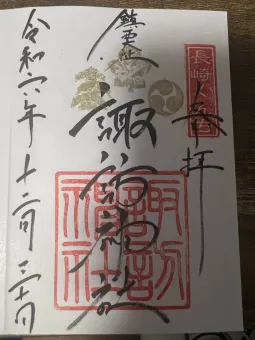 長崎
奉拝
鎮西大社
諏訪神社
諏訪
神社
令和六年十二月三十日